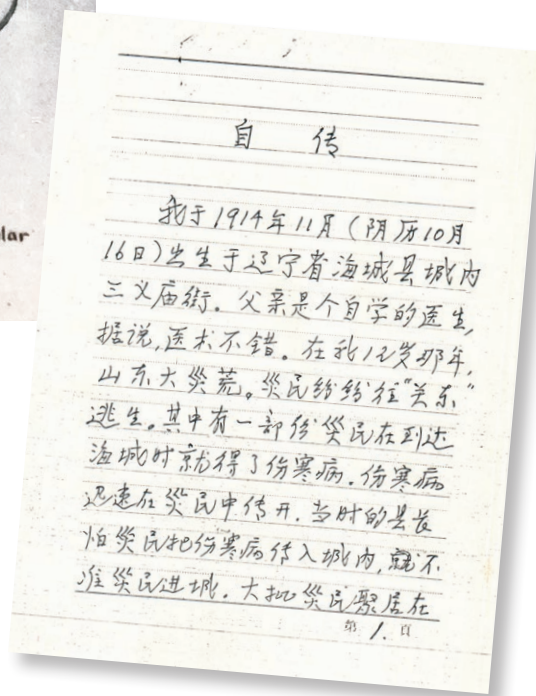 lar
自 传
我于1914年11月(阴历10月
16日)出生于辽宁省海城县城内
三义庙街。父亲是个自学的医生,
据说,医术不错。在我12岁那年,
山东大災荒。災民纷纷往"关东"
逃生。其中有一部份災民在到达
海城时就得了伤寒病。伤寒病
迅速在災民中传开。当时的县长
怕災民把伤寒病传入城内,就不
准災民进城。大批災民聚居在
第 1. 頁